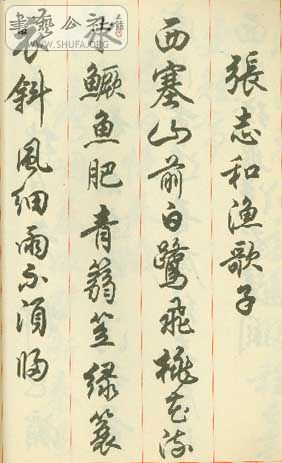 張志和漁歌子
西塞山前白鷺飛桃花流
水鱖魚肥青蒻笠綠蓑
衣斜風細雨不須歸
書藝公社
WWW.SHUFA.ORG